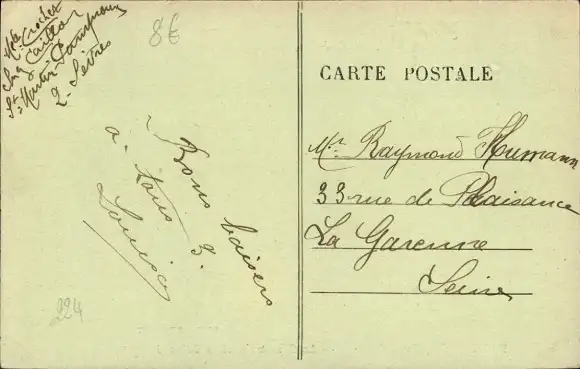 Mlle Crochet
chez Caillon
St Martin
2 - Sèvres
8€
Bons baisers
à tous 3.
Louise
224
CARTE POSTALE
Mr Raymond Humann
33 rue de Plaisance
La Garenne
Seine